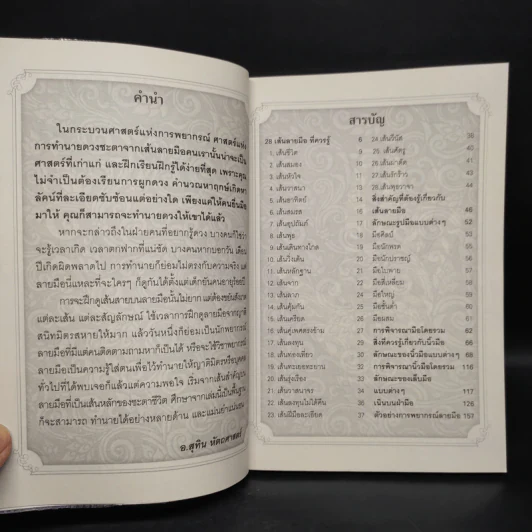 คำนำ
ในกระบวนศาสตร์แห่งการพยากรณ์ ศาสตร์แห่ง
การทำนายดวงชะตาจากเส้นลายมือคนเรานั้นน่าจะเป็น
ศาสตร์ที่เก่าแก่ และฝึกเรียนฝึกรู้ได้ง่ายที่สุด เพราะคุณ
ไม่จำเป็นต้องเรียนการผูกดวง คำนวณหาฤกษ์เกิดหา
ลัคน์ที่ละเอียดซับซ้อนแต่อย่างใด เพียงแค่ให้คนยื่นมือ
มาให้ คุณก็สามารถจะทำนายดวงให้เขาได้แล้ว
หากจะกล่าวถึงในฝ่ายคนที่อยากรู้ดวง บางคนก็ไม่
จะรู้เวลาเกิด เวลาตกฟากที่แน่ชัด บางคนหากบอกวัน เดือน
ปีเกิดผิดพลาดไป การทำนายก็ย่อมไม่ตรงกับความจริง แต่
ลายมือนี่แหละที่จะใครๆ ก็ดูกันได้ตั้งแต่เด็กยันคนอายุร้อยปี
การจะฝึกดูเส้นลายบนลายมือนั้นไม่ยาก แต่ต้องขยัน
แต่ละเส้น และแต่ละสัญลักษณ์ ใช้เวลาการฝึกดูลายมือจากญาติ
สนิทมิตรสหายให้มาก แล้ววันหนึ่งก็ย่อมเป็นนักพยากรณ์
ลายมือที่มีแต่คนติดตามถามหาก็เป็นได้ หรือจะใช้วิชาพยากรณ์
ลายมือเป็นความรู้ใส่ตนเพื่อไว้ทำนายให้ญาติมิตรหรือบุคคล
ทั่วไปที่ได้พบเจอก็แล้วแต่ความพอใจ เริ่มจากเส้นสำคัญบน
ลายมือที่เป็นเส้นหลักของชะตาชีวิต ศึกษาจากเล่มนี้เป็นพื้นฐาน
ก็จะสามารถ ทำนายได้อย่างหลายด้าน และแม่นยำแน่นอน
อ.สุทิน หัตถศาสตร์
สารบัญ
28 เส้นลายมือ ที่ควรรู้ 6
1. เส้นชีวิต 9
2. เส้นสมอง 10
3. เส้นหัวใจ 13
4. เส้นวาสนา 14
5. เส้นอาทิตย์ 15
6. เส้นสมรส 16
7. เส้นอุปถัมภ์ 17
8. เส้นพุธ 18
9. เส้นเดินทางไกล 19
10. เส้นวิ่งเต้น 20
11. เส้นหลักฐาน 21
12. เส้นจาก 22
13. เส้นลาภ 24
14. เส้นคุ้มกัน 25
15. เส้นเครียด 26
16. เส้นคู่เพศตรงข้าม 27
17. เส้นลงทุน 28
18. เส้นท่องเที่ยว 30
19. เส้นทะเยอทะยาน 31
20. เส้นรุ่งเรือง 33
21. เส้นวาสนาจร 34
22. เส้นลงทุนไม่ได้คืน 36
23. เส้นฝีมือละเอียด 37
24. เส้นวินัย 38
25. เส้นศัตรู 40
26. เส้นผ่าตัด 41
27. เส้นรักร้าว 43
28. เส้นพูดวาจา 44
สิ่งสำคัญที่ต้องรู้เกี่ยวกับ
เส้นลายมือ 46
ลักษณะรูปมือแบบต่างๆ 52
มือศิลป์ 53
มือนักพรต 54
มือนักปราชญ์ 55
มือใบพาย 57
มือสี่เหลี่ยม 58
มือใหญ่ 59
มือชั้นต่ำ 61
มือผสม 62
การพิจารณามือโดยรวม 63
สิ่งที่ควรรู้เกี่ยวกับนิ้วมือ 64
ลักษณะของนิ้วมือแบบต่างๆ 66
การพิจารณานิ้วมือโดยรวม 116
ลักษณะของเล็บมือ
แบบต่างๆ 117
เนินบนฝ่ามือ 126
ตัวอย่างการพยากรณ์ลายมือ 153